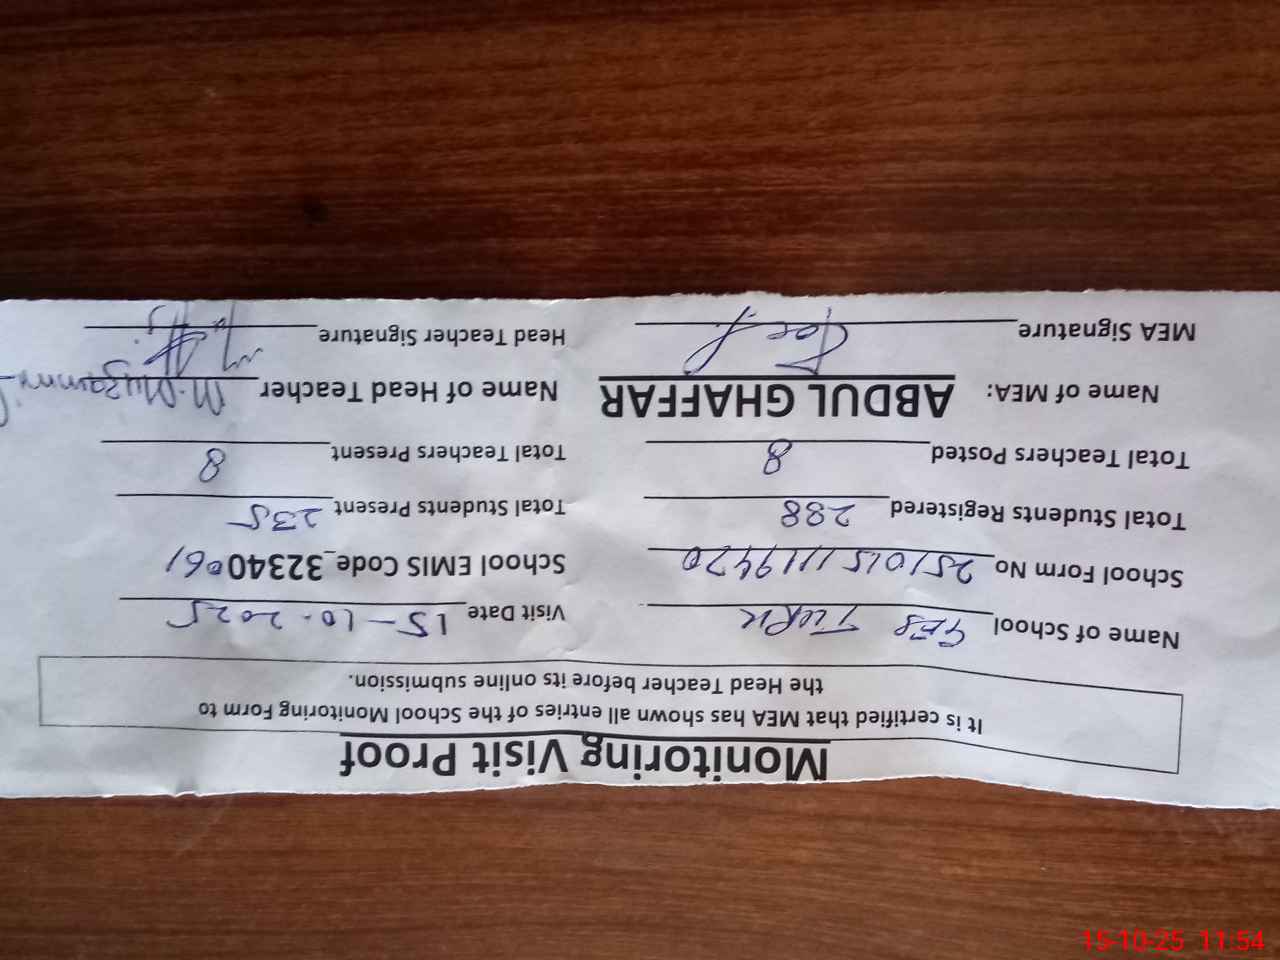 Monitoring Visit Proof
It is certified that MEA has shown all entries of the School Monitoring Form to
the Head Teacher before its online submission.
Name of School GES TURK Visit Date 15-10-2025
School Form No 2510151119420 School EMIS Code_32340061
Total Students Registered 288 Total Students Present 235
Total Teachers Posted 8 Total Teachers Present 8
Name of MEA: ABDUL GHAFFAR Name of Head Teacher M. Muzammil
MEA Signature Head Teacher Signature
15-10-25 11:54